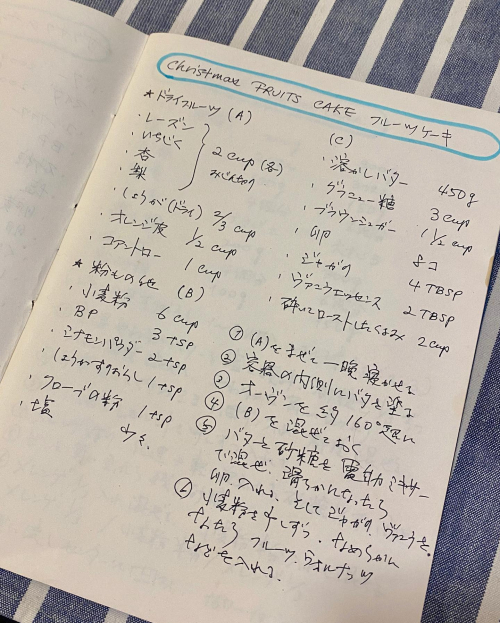 Christmas FRUITS CAKE フルーツケーキ
★ドライフルーツ (A)
・レーズン
・いちじく
・杏
・梨
2 cup (各)
みじんぎり
・しょうが(ドライ) 2/3 cup
・オレンジ皮 1/2 cup
・コアントロー 1 cup
★粉もの他 (B)
・小麦粉 6 cup
・BP 3 tsp
・シナモンパウダー 2 tsp
・しょうがすりおろし 1 tsp
・クローブの粉 1 tsp
・塩 少々
(C)
・溶かしバター 450g
・グラニュー糖 3 cup
・ブラウンシュガー 1 1/2 cup
・卵 8コ
・ジャガイモ 4 TBSP
・ヴァニラエッセンス 2 TBSP
・砕いてローストしたくるみ 2 cup
① (A)をまぜて一晩寝かせる
② 容器の内側にバタを塗る
③ オーヴンを 160°
④ (B)を混ぜておく
⑤ バターと砂糖を電動ミキサー
で混ぜ、滑らかになったら
卵 入れる、そして ヴァニラを。
⑥ 小麦粉を少しずつ、なめらかに
なったら フルーツ、ウォルナッツ
などを入れる。